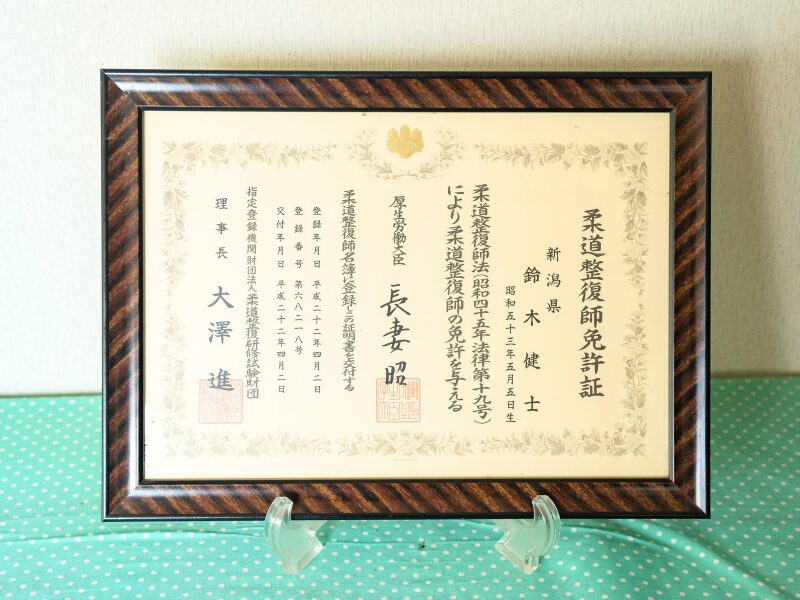 柔道整復師免許証
新潟県
鈴木健士
昭和五十三年五月五日生
柔道整復師法(昭和四十五年法律第十九号)
により柔道整復師の免許を与える
厚生労働大臣 長妻昭
柔道整復師名簿に登録しこの証明書を交付する
登録年月日 平成二十二年四月二日
登録番号 第六八二一八号
交付年月日 平成二十二年四月二日
指定登録機関財団法人柔道整復研修試験財団
理事長 大澤進